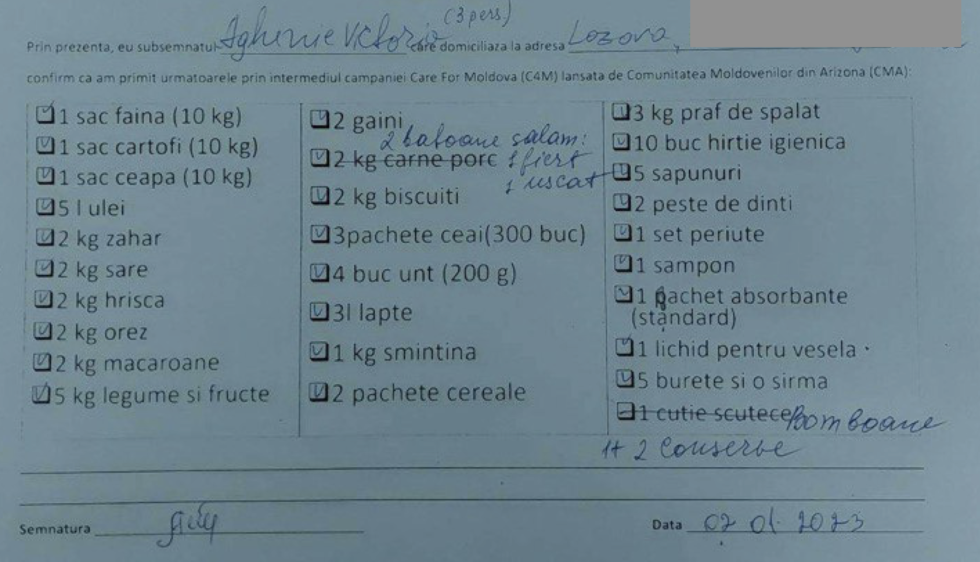 (3 pers)
Prin prezenta, eu subsemnatul Aghenie Victoria care domiciliaza la adresa Lozova,
confirm ca am primit urmatoarele prin intermediul campaniei Care For Moldova (C4M) lansata de Comunitatea Moldovenilor din Arizona (CMA):
1 sac faina (10 kg)
1 sac cartofi (10 kg)
1 sac ceapa (10 kg)
5 l ulei
2 kg zahar
2 kg sare
2 kg hrisca
2 kg orez
2 kg macaroane
5 kg legume si fructe
2 gaini
2 batoane salam:
2 kg carne porc 1 fiert
1 uscat
2 kg biscuiti
3pachete ceai(300 buc)
4 buc unt (200 g)
3l lapte
1 kg smintina
2 pachete cereale
3 kg praf de spalat
10 buc hirtie igienica
5 sapunuri
2 peste de dinti
1 set periute
1 sampon
1 pachet absorbante
(standard)
1 lichid pentru vesela
5 burete si o sirma
1 cutie scutece Bomboane
2 conserve
Semnatura
Data 02 01 2023